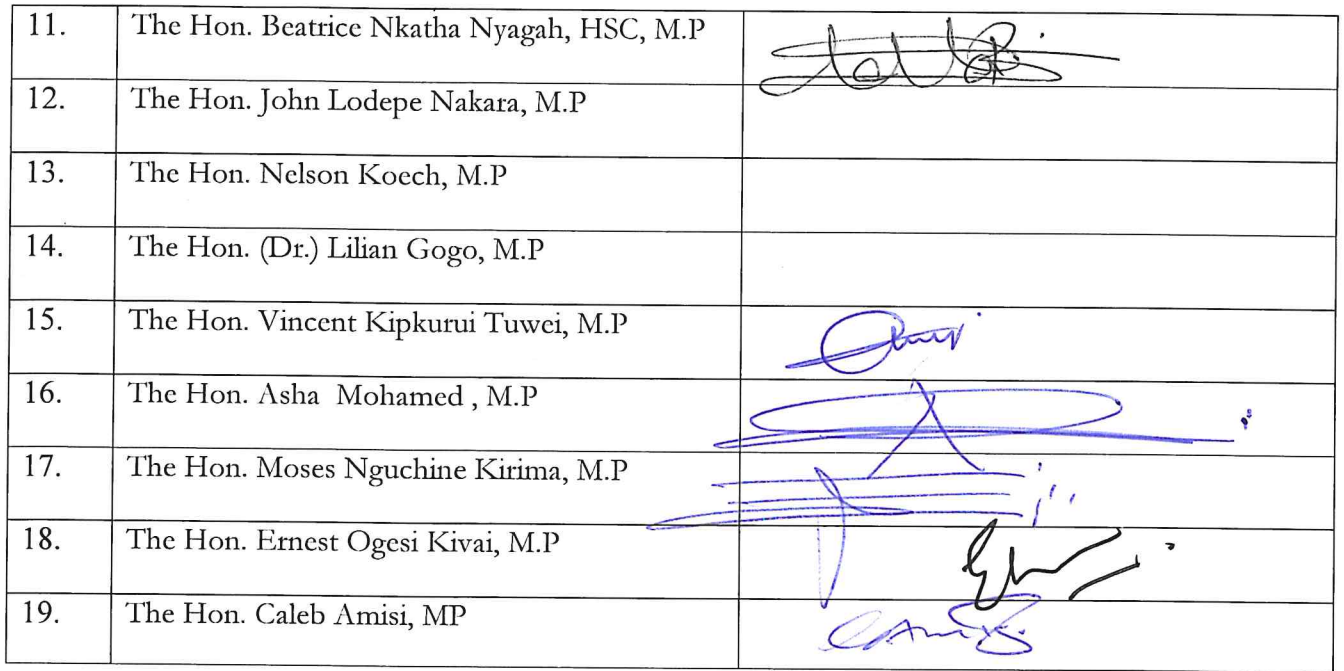 11. The Hon. Beatrice Nkatha Nyagah, HSC, M.P
12. The Hon. John Lodepe Nakara, M.P
13. The Hon. Nelson Koech, M.P
14. The Hon. (Dr.) Lilian Gogo, M.P
15. The Hon. Vincent Kipkurui Tuwei, M.P
16. The Hon. Asha Mohamed , M.P
17. The Hon. Moses Nguchine Kirima, M.P
18. The Hon. Ernest Ogesi Kivai, M.P
19. The Hon. Caleb Amisi, MP